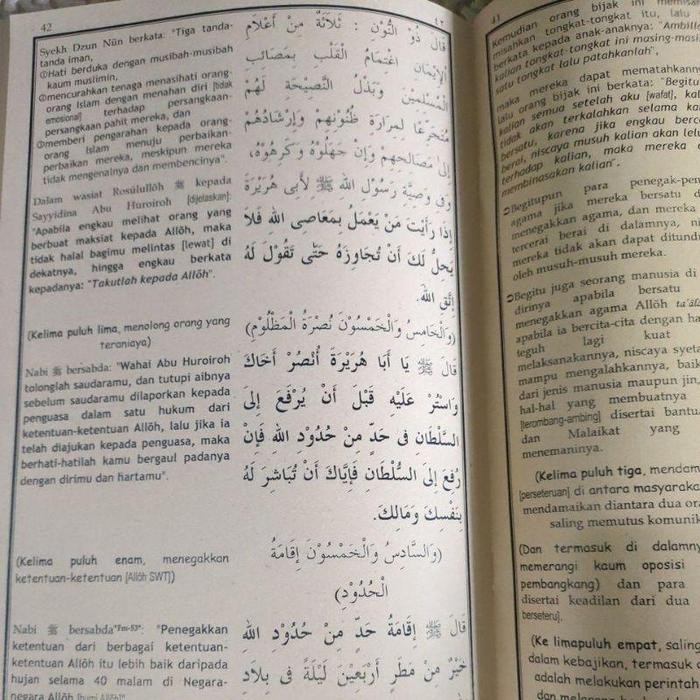 42
Syekh Dzun Nūn berkata: "Tiga tanda-
tanda iman,
①Hati berduka dengan musibah-musibah
kaum muslimin,
②mencurahkan tenaga menasihati orang-
orang Islam dengan menahan diri [tidak
emosional] terhadap persangkaan-
persangkaan pahit mereka, dan
③memberi pengarahan kepada orang-
orang Islam menuju perbaikan-
perbaikan mereka, meskipun mereka
tidak mengenalinya dan membencinya".
Dalam wasiat Rosūlullōh ﷺ kepada
Sayyidina Abu Huroiroh [dijelaskan]:
"Apabila engkau melihat orang yang
berbuat maksiat kepada Allōh, maka
tidak halal bagimu melintas [lewat] di
dekatnya, hingga engkau berkata
kepadanya: "Takutlah kepada Allōh".
(Kelima puluh lima, menolong orang yang
teraniaya)
Nabi ﷺ bersabda: "Wahai Abu Huroiroh
tolonglah saudaramu, dan tutupi aibnya
sebelum saudaramu dilaporkan kepada
penguasa dalam satu hukum dari
ketentuan-ketentuan Allōh, lalu jika ia
telah diajukan kepada penguasa, maka
berhati-hatilah kamu bergaul padanya
dengan dirimu dan hartamu".
(Kelima puluh enam, menegakkan
ketentuan-ketentuan [Allōh SWT])
Nabi ﷺ bersabda"Fm-53": "Penegakkan
ketentuan dari berbagai ketentuan-
ketentuan Allōh itu lebih baik daripada
hujan selama 40 malam di Negara-
negara Allōh
٤٢
قَالَ ذُو النُّوْنِ : ثَلَاثَةٌ مِنْ أَعْلَامِ
الْإِيْمَانِ اغْتِمَامُ الْقَلْبِ بِمَصَائِبِ
الْمُسْلِمِيْنَ وَبَذْلُ النَّصِيْحَةِ لَهُمْ
مُتَجَرِّعًا لِمَرَارَةِ ظُنُوْنِهِمْ وَإِرْشَادُهُمْ
إِلَى مَصَالِحِهِمْ وَإِنْ جَهِلُوْهُ وَكَرِهُوْهُ،
وَفِى وَصِيَّةِ رَسُوْلِ اللهِ ﷺ لِأَبِى هُرَيْرَةَ
إِذَا رَأَيْتَ مَنْ يَعْمَلُ بِمَعَاصِى اللهِ فَلَا
يَحِلُّ لَكَ أَنْ تُجَاوِزَهُ حَتَّى تَقُوْلَ لَهُ
اِتَّقِ اللهَ.
(وَالْخَامِسُ وَالْخَمْسُوْنَ نُصْرَةُ الْمَظْلُوْمِ)
قَالَ ﷺ يَا أَبَا هُرَيْرَةَ أُنْصُرْ أَخَاكَ
وَاسْتُرْ عَلَيْهِ قَبْلَ أَنْ يُرْفَعَ إِلَى
السُّلْطَانِ فِى حَدٍّ مِنْ حُدُوْدِ اللهِ فَإِنْ
رُفِعَ إِلَى السُّلْطَانِ فَإِيَّاكَ أَنْ تُبَاشِرَ لَهُ
بِنَفْسِكَ وَمَالِكَ.
(وَالسَّادِسُ وَالْخَمْسُوْنَ إِقَامَةُ
الْحُدُوْدِ)
قَالَ ﷺ إِقَامَةُ حَدٍّ مِنْ حُدُوْدِ اللهِ
خَيْرٌ مِنْ مَطَرِ أَرْبَعِيْنَ لَيْلَةً فِى بِلَادِ
41
Kemudian orang bijak ini memisah
misahkan tongkat-tongkat itu, lalu
berkata kepada anak-anaknya: "Ambillah
kalian tongkat-tongkat ini masing-masing
satu tongkat lalu patahkanlah",
maka mereka dapat mematahkannya
lalu orang bijak ini berkata: "Begitu
kalian semua setelah aku [wafat], kalian
tidak akan terkalahkan selama kalian
bersatu, karena jika engkau bercerai
berai, niscaya musuh kalian akan leluasa
terhadap kalian, maka mereka
membinasakan kalian".
➲Begitupun para penegak-penegak
agama jika mereka bersatu
menegakkan agama, dan mereka
tercerai berai di dalamnya,
mereka tidak akan dapat ditundukkan
oleh musuh-musuh mereka.
➲Begitu juga seorang manusia di
dirinya apabila bersatu
menegakkan agama Allōh ta'ālā
apabila ia bercita-cita dengan
teguh lagi kuat
melaksanakannya, niscaya
mampu mengalahkannya, baik
dari jenis manusia maupun jin
hal-hal yang membuatnya
[terombang-ambing] disertai bantuan
dan Malaikat yang
menemaninya.
(Kelima puluh tiga, mendamaikan
[perseteruan] di antara masyarakat
mendamaikan diantara dua orang
saling memutus komunikasi
(Dan termasuk di dalamnya
memerangi kaum oposisi
pembangkang) dan para
disertai keadilan dari dua
berseteru].
(Ke limapuluh empat, saling
dalam kebajikan, termasuk
adalah melakukan perintah